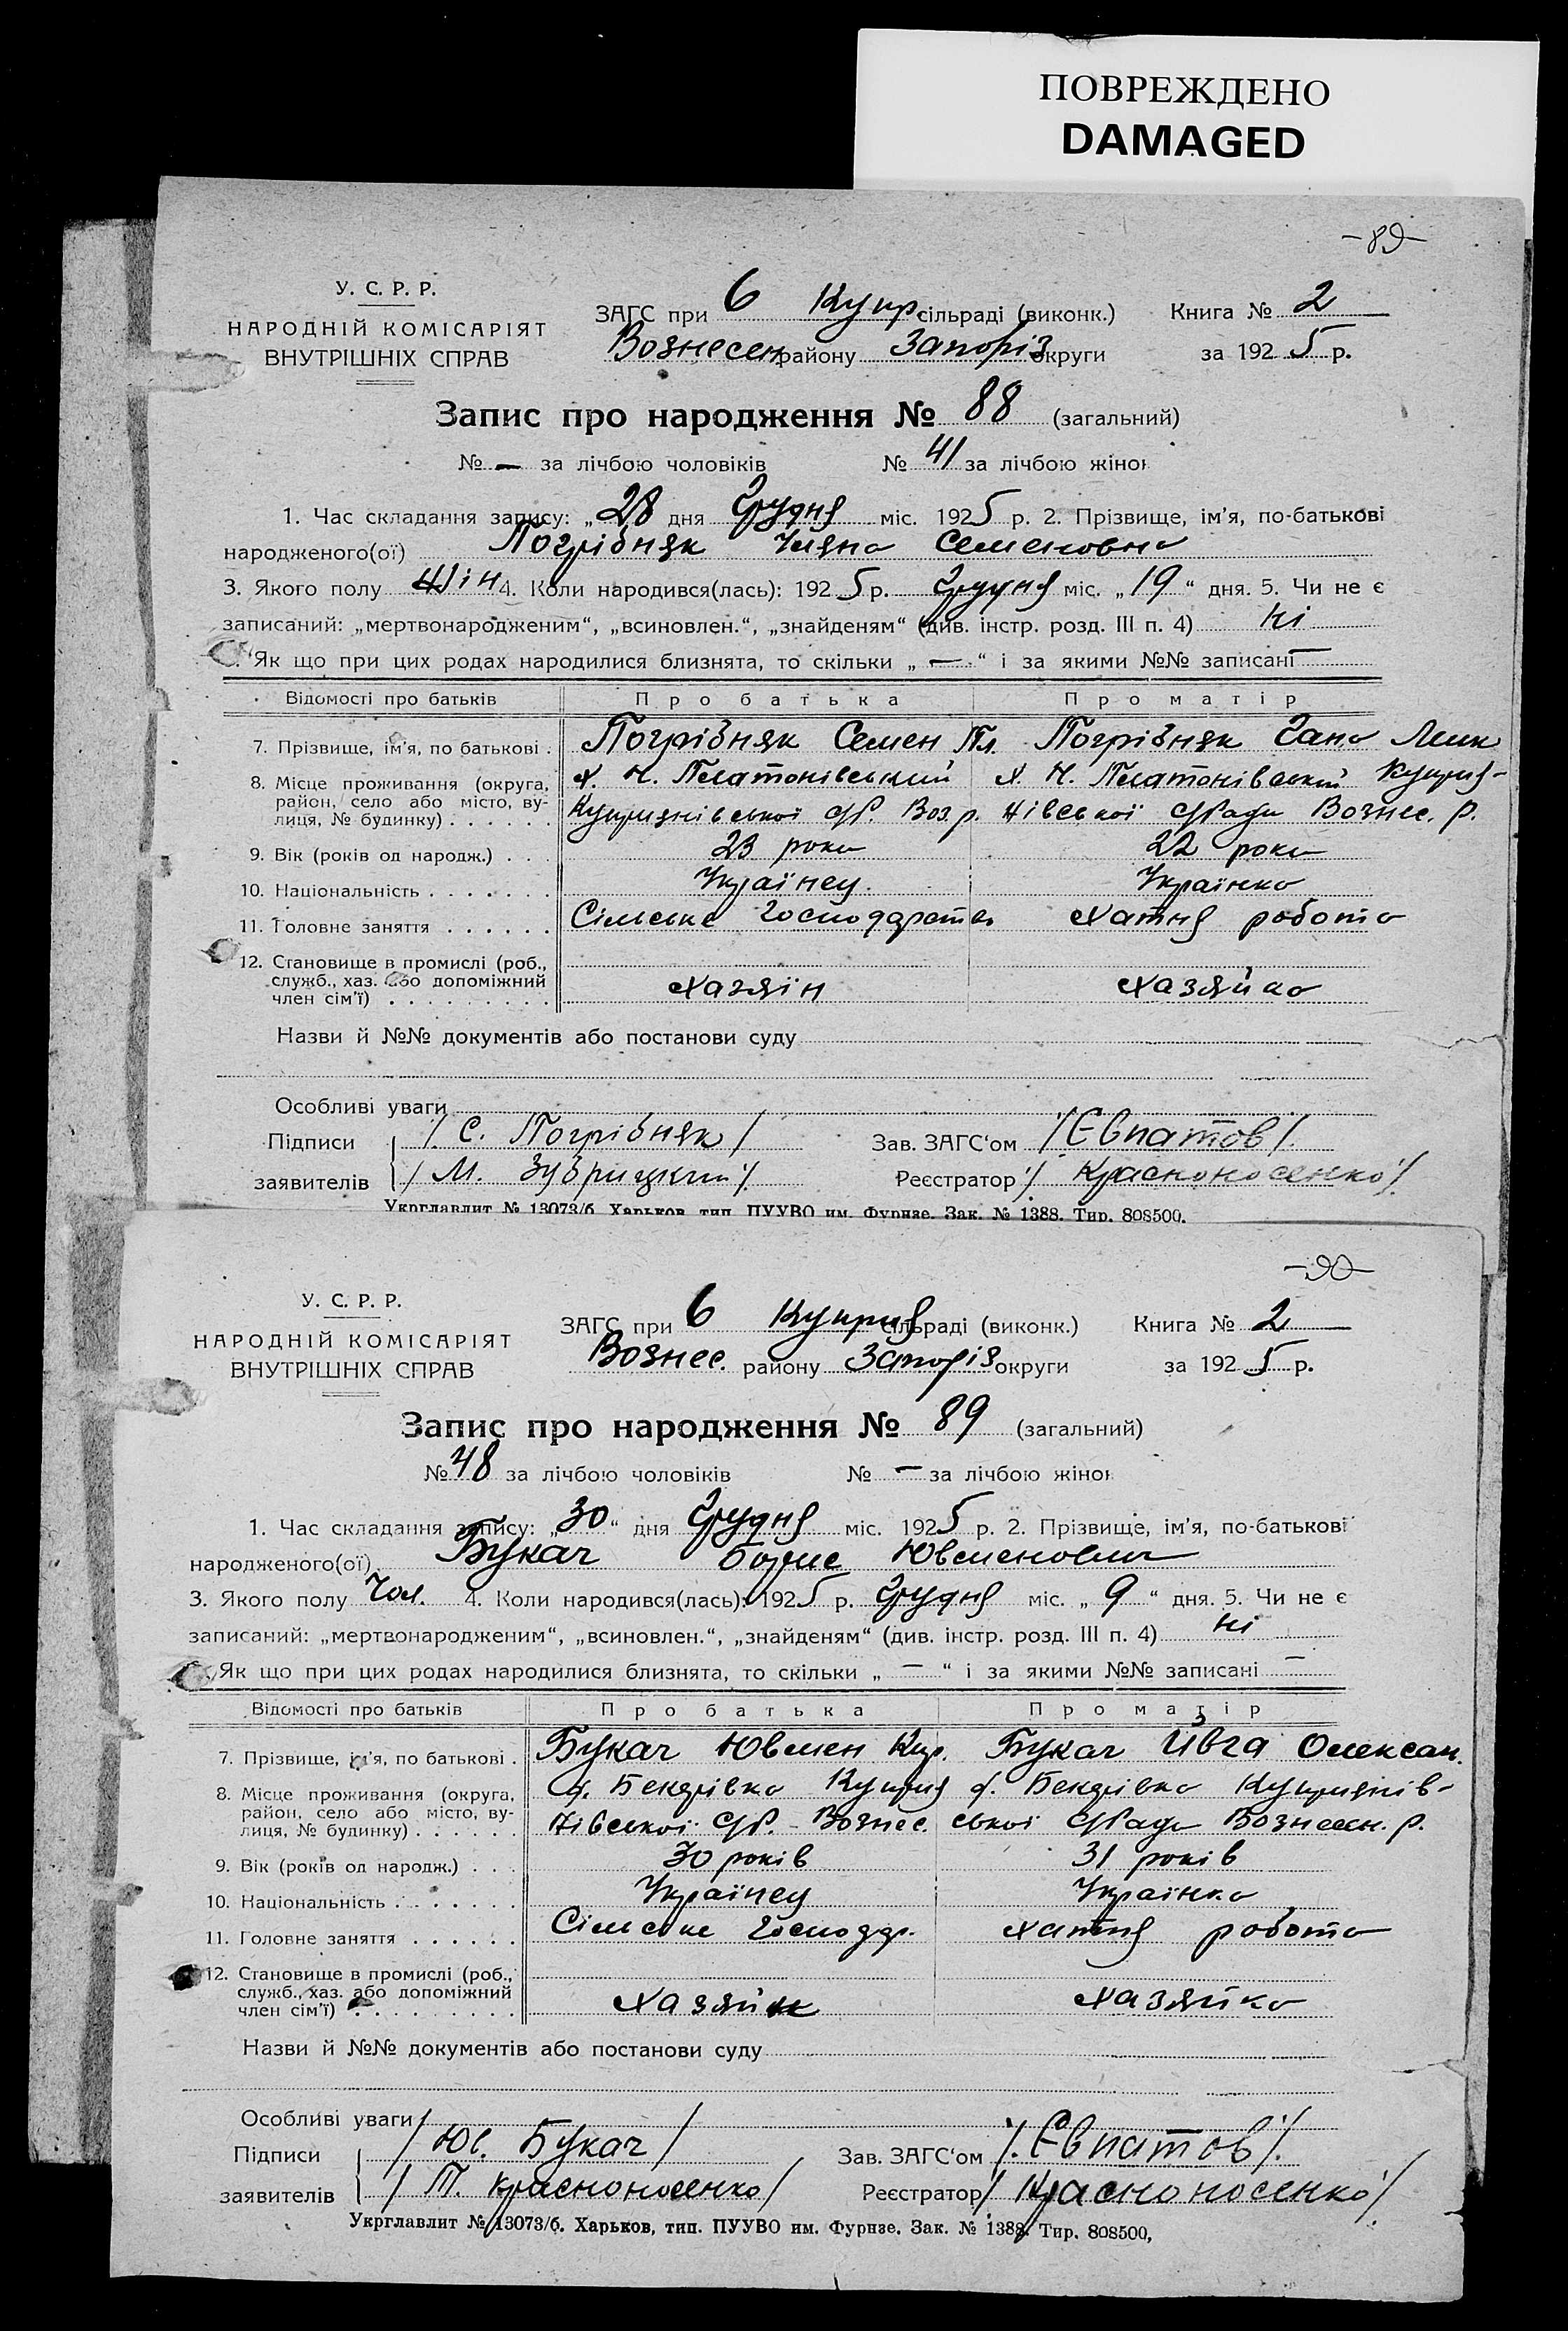 ПОВРЕЖДЕНО
DAMAGED
-89-
У. С. Р. Р.
НАРОДНІЙ КОМІСАРІЯТ
ВНУТРІШНІХ СПРАВ
ЗАГС при 6 Купр. сільраді (виконк.) Книга № 2
Вознесен району Запоріз округи за 1925 р.
Запис про народження № 88 (загальний)
№ — за лічбою чоловіків № 41 за лічбою жінок
1. Час складання запису: „28 дня Грудня міс. 1925 р. 2. Прізвище, ім'я, по-батькові
народженого(ої) Погрібняк Уляна Семеновна
3. Якого полу Жін 4. Коли народився(лась): 1925 р. Грудня міс. „19“ дня. 5. Чи не є
записаний: „мертвонародженим“, „всиновлен.“, „знайденям“ (див. інстр. розд. III п. 4) ні
Як що при цих родах народилися близнята, то скільки „—“ і за якими №№ записані —
Відомості про батьків Про батька Про матір
7. Прізвище, ім'я, по батькові . Погрібняк Семен Пл. Погрібняк Гана
8. Місце проживання (округа, х. Н. Платонівський х. Н. Платонівський Куприя-
район, село або місто, ву- Куприянівської с/Р. Воз. р. нівської с/Ради Вознес. р.
лиця, № будинку) . . . . . .
9. Вік (років од народж.) . . . 23 роки 22 роки
10. Національність . . . . . . . Українец. Українка
11. Головне заняття . . . . . . Сільське Господарств хатня робота
12. Становище в промислі (роб.,
служб., хаз. або допоміжний хазяїн хазяйка
член сім'ї) . . . . . . . . .
Назви й №№ документів або постанови суду
Особливі уваги
Підписи /С. Погрібняк/ Зав. ЗАГС'ом /Євпатов/.
заявителів /М. Зубрицкий/. Реєстратор /Красноносенко/.
Укрглавлит № 13073/б. Харьков, тип. ПУУВО им. Фурнзе. Зак. № 1388. Тир. 808500.
-90-
У. С. Р. Р.
НАРОДНІЙ КОМІСАРІЯТ
ВНУТРІШНІХ СПРАВ
ЗАГС при 6 Куприя сільраді (виконк.) Книга № 2
Вознес. району Запоріз округи за 1925 р.
Запис про народження № 89 (загальний)
№ 48 за лічбою чоловіків № — за лічбою жінок
1. Час складання запису: „30“ дня Грудня міс. 1925 р. 2. Прізвище, ім'я, по-батькові
народженого(ої) Букач Борис Ювменович
3. Якого полу Чол. 4. Коли народився(лась): 1925 р. Грудня міс. „9“ дня. 5. Чи не є
записаний: „мертвонародженим“, „всиновлен.“, „знайденям“ (див. інстр. розд. III п. 4) ні
Як що при цих родах народилися близнята, то скільки „—“ і за якими №№ записані —
Відомості про батьків Про батька Про матір
7. Прізвище, ім'я, по батькові . Букач Ювмен Кир. Букач Ивга Олексан.
8. Місце проживання (округа, Бекарівка Куприя Бекарівка Куприянів-
район, село або місто, ву- нівської с/Р. - Вознес. ської с/Ради Вознесен. р.
лиця, № будинку) . . . . . .
9. Вік (років од народж.) . . . 30 років 31 років
10. Національність . . . . . . . Українец Українка
11. Головне заняття . . . . . . Сільське Господар. хатня робота
12. Становище в промислі (роб.,
служб., хаз. або допоміжний хазяйн хазяйка
член сім'ї) . . . . . . . . .
Назви й №№ документів або постанови суду
Особливі уваги
Підписи /Юв. Букач/ Зав. ЗАГС'ом /.Євпатов/.
заявителів /П. Красноносенко/ Реєстратор /Красноносенко/.
Укрглавлит № 13073/б. Харьков, тип. ПУУВО им. Фурнзе. Зак. № 1388. Тир. 808500,